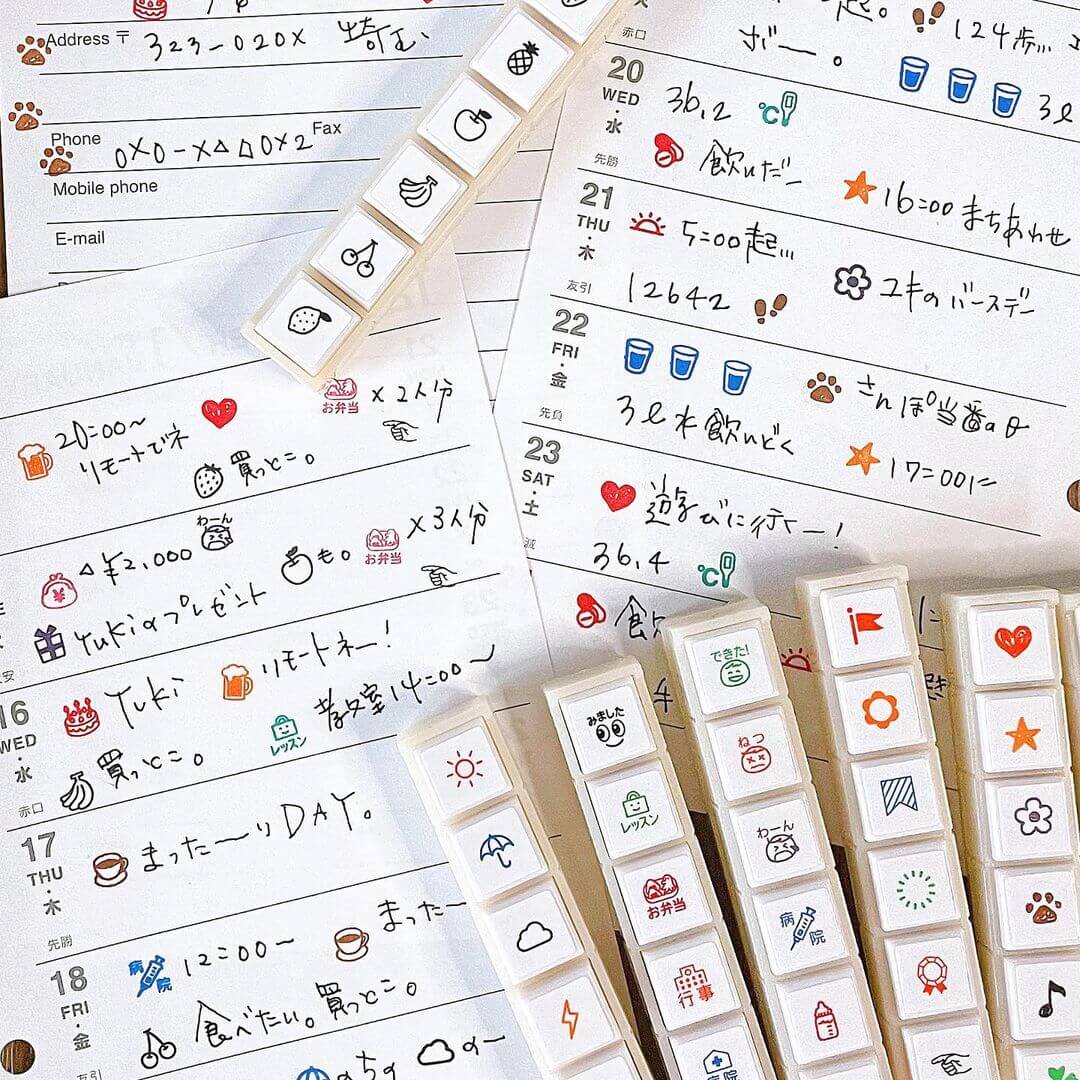 Address 〒 323-020X 埼玉
Phone 0X0-X△△0X2 Fax
Mobile phone
E-mail
赤口
124歩
3ℓ
20
WED
水
先勝
36.2 ℃
飲んだ
16:00 まちあわせ
21
THU
木
友引
5:00起
12642
ユキのバースデー
22
FRI
金
先負
さんぽ当番の日
3ℓ水飲んどく
17:00に
23
SAT
土
滅
遊びに行くー!
36.4 ℃
20:00~
リモートでネ
お弁当 ×2人分
買っとこ。
¥2,000
わーん
も。
お弁当 ×3人分
Yukiのプレゼント
安
16
WED
水
赤口
Yuki
リモートネー!
レッスン
教室14:00~
買っとこ。
17
THU
木
先勝
まった~りDAY。
18
FRI
金
友引
病院 12:00~
まった
食べたい。買っとこ。
みました
レッスン
お弁当
行事
病院
できた!
ねつ
わーん
病院